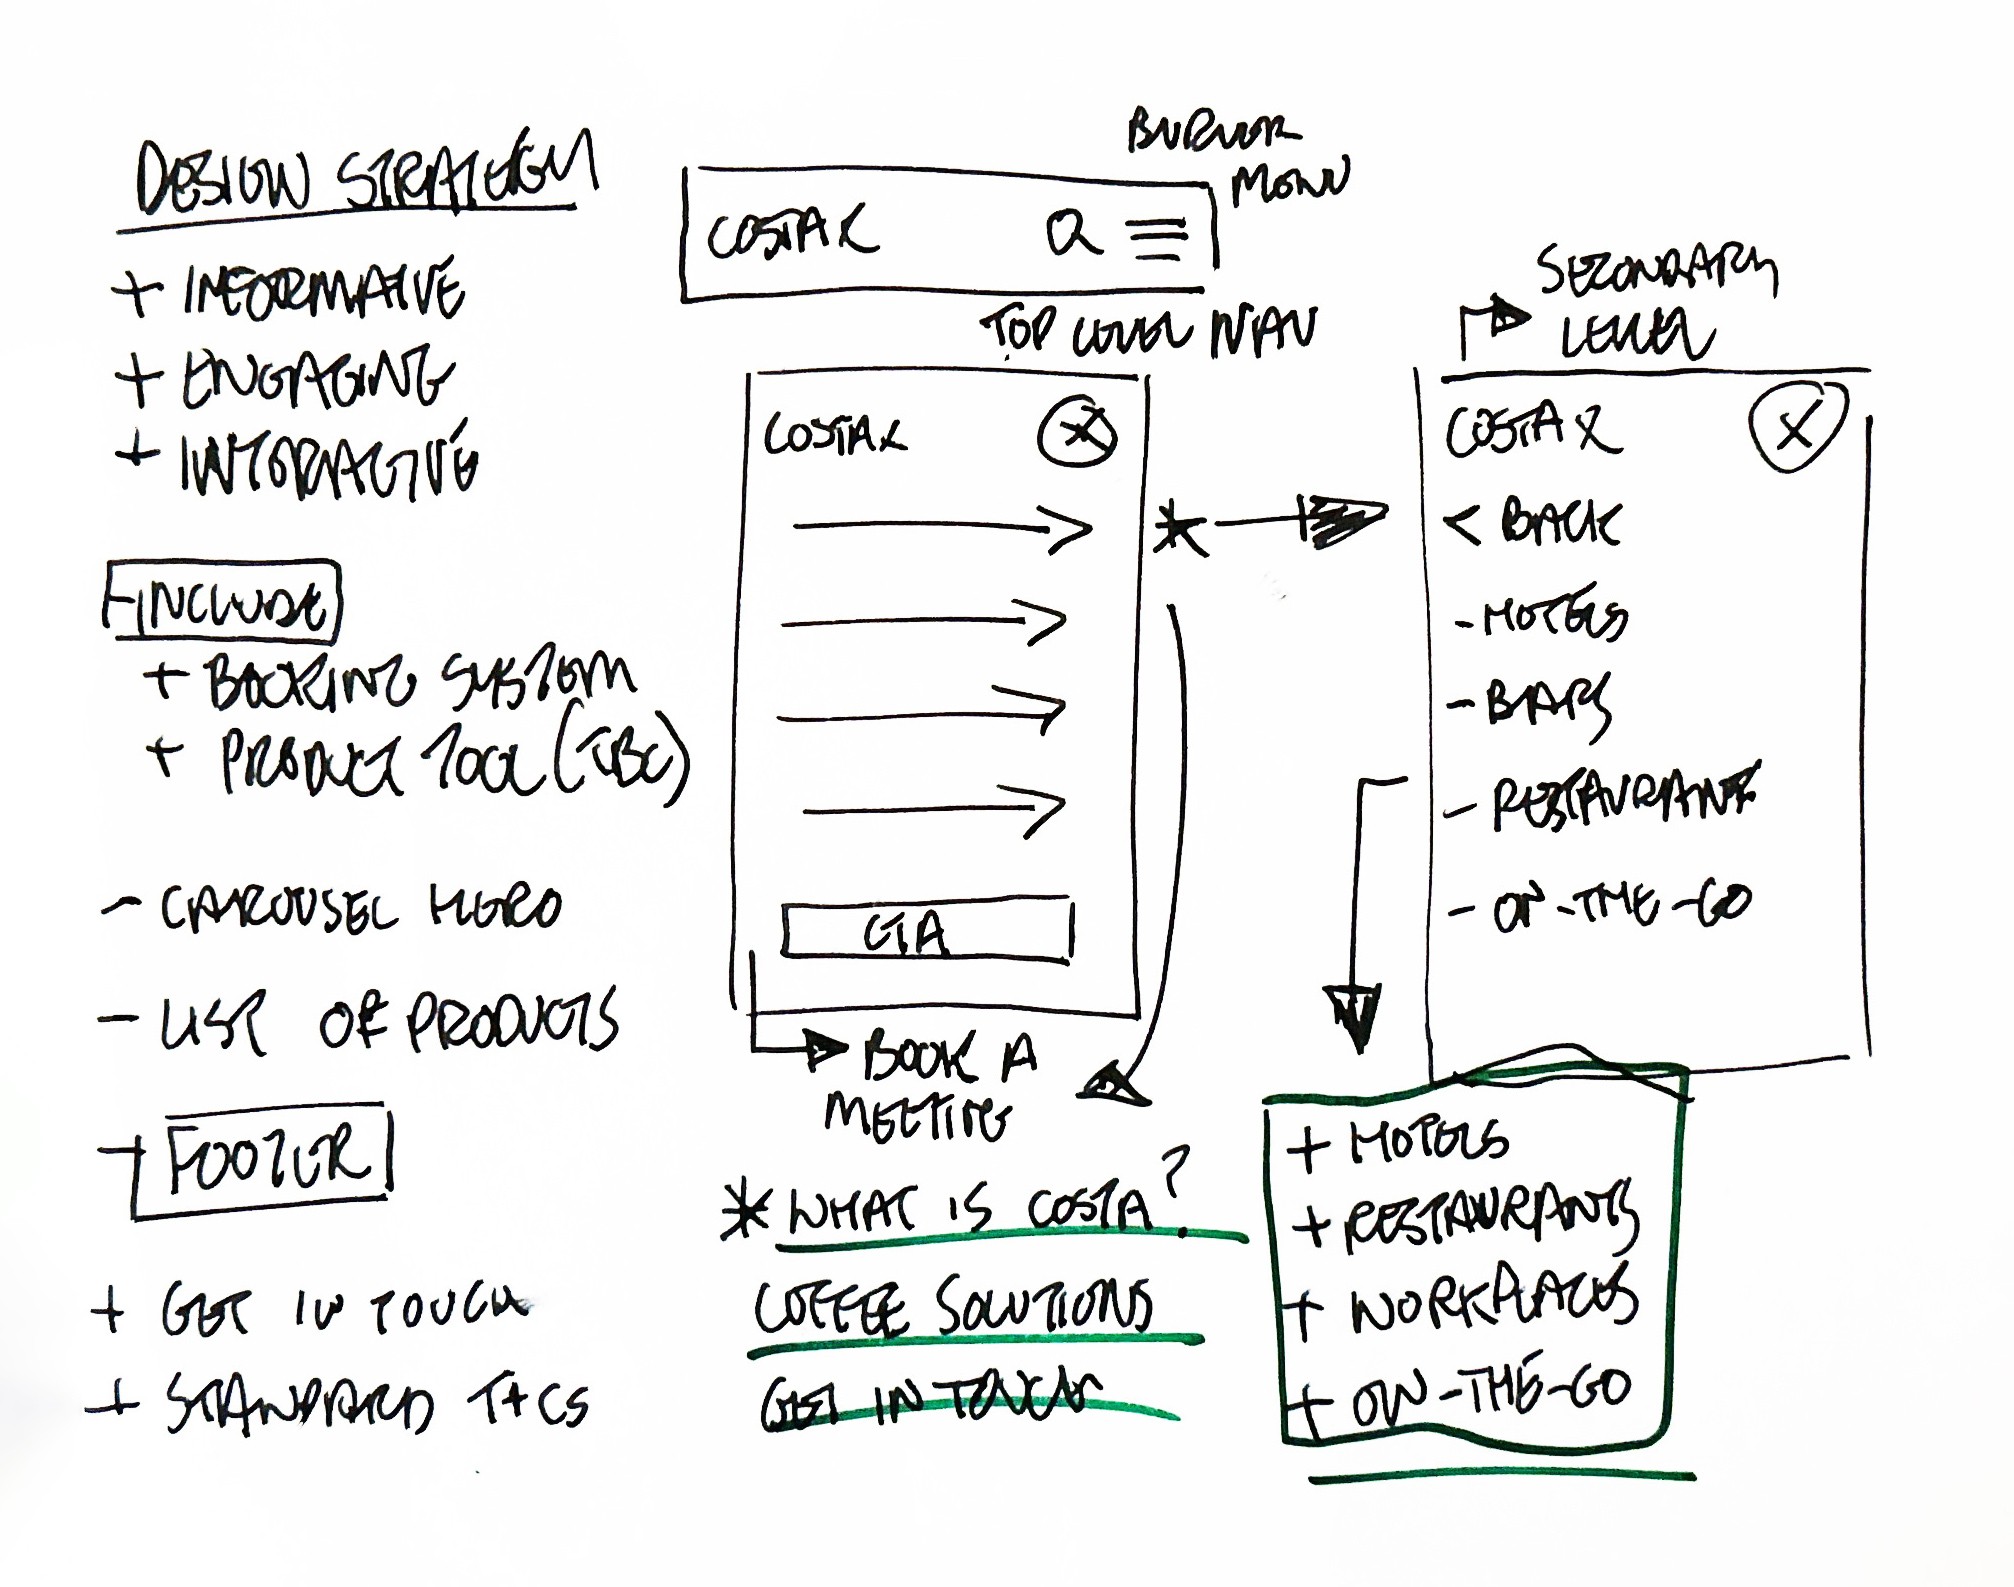 DESIGN STRATEGY
+ INFORMATIVE
+ ENGAGING
+ INTERACTIVE
INCLUDE
+ BOOKING SYSTEM
+ PRODUCT TOOL (TBC)
- CAROUSEL HERO
- LIST OF PRODUCTS
FOOTER
+ GET IN TOUCH
+ STANDARD T+CS
BURGER
MENU
COSTA X
TOP LEVEL NAV
COSTA X
X
CTA
BOOK A
MEETING
* WHAT IS COSTA?
COFFEE SOLUTIONS
GET IN TOUCH
SECONDARY
LEVEL
COSTA X
X
< BACK
- HOTELS
- BARS
- RESTAURANT
- ON-THE-GO
+ HOTELS
+ RESTAURANTS
+ WORKPLACES
+ ON-THE-GO